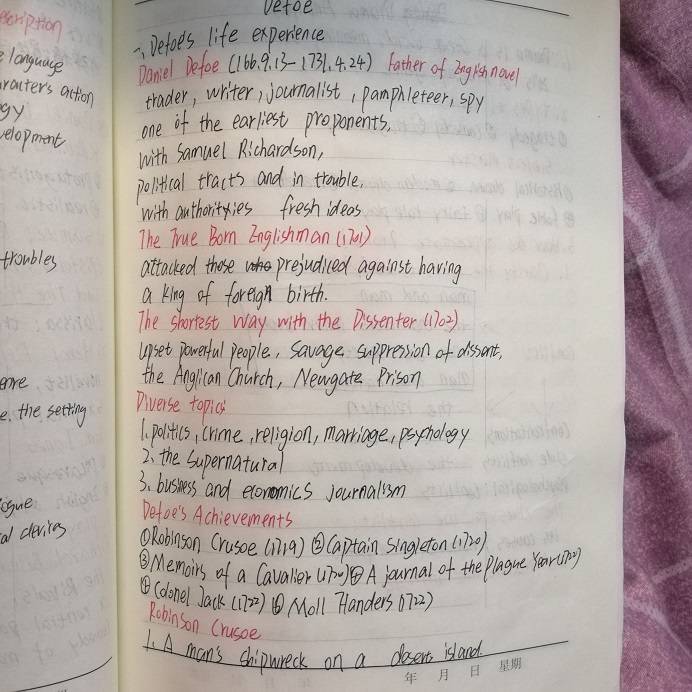 scription
e language
aracter's action
ogy
velopment
troubles
enre
e, the setting
ogue
al devices
Defoe
一、Defoe's life experience
Daniel Defoe (166.9.13-1731.4.24) Father of English novel
trader, writer, journalist, pamphleteer, spy
one of the earliest proponents,
with Samuel Richardson,
political tracts and in trouble,
with authorityies fresh ideas
The True Born Englishman (1701)
attacked those who prejudiced against having
a king of foreign birth.
The shortest way with the Dissenter (1702)
upset powerful people, savage suppression of dissent,
the Anglican Church, Newgate Prison
Diverse topics
1. politics, crime, religion, marriage, psychology
2. the supernatural
3. business and economics journalism
Defoe's Achievements
①Robinson Crusoe (1719) ②Captain Singleton (1720)
③Memoirs of a Cavalier (1720) ④A journal of the Plague Year (1722)
⑤Colonel Jack (1722) ⑥ Moll Flanders (1722)
Robinson Crusoe
1. A man's shipwreck on a desert island.
年 月 日 星期